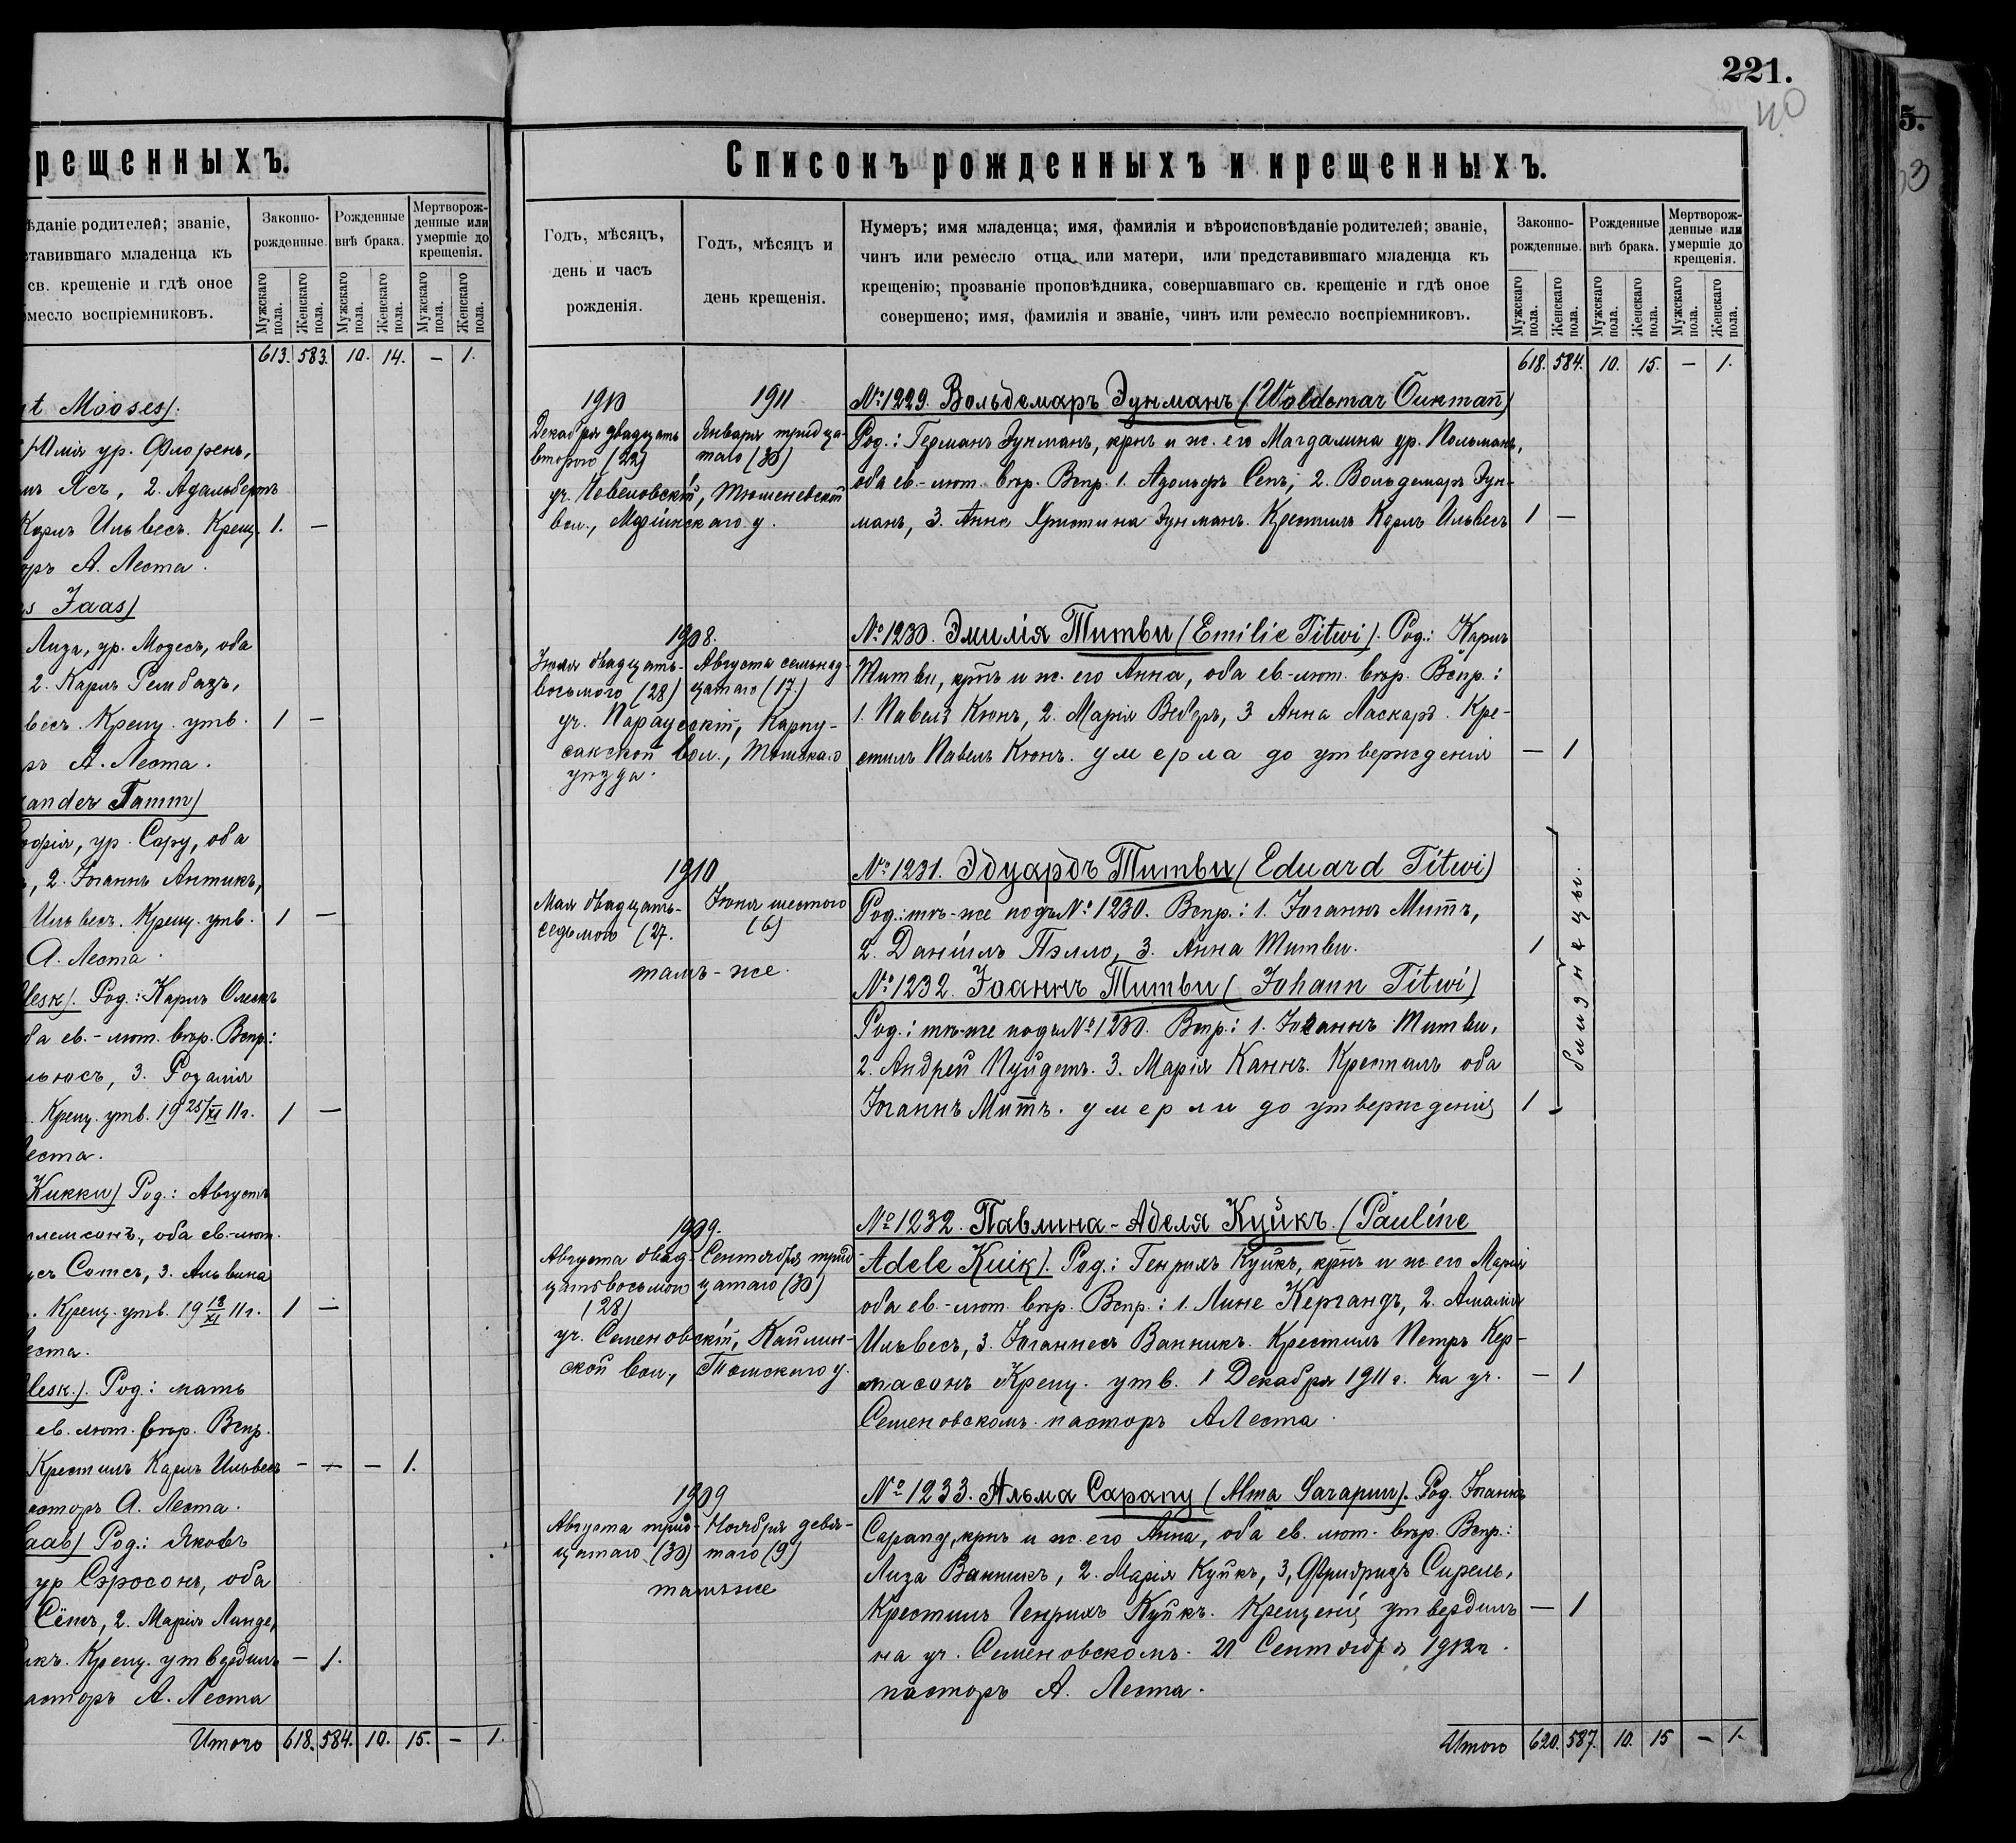 рещенныхъ.
ѣданіе родителей; званіе,
ставившаго младенца къ
св. крещеніе и гдѣ оное
месло воспріемниковъ.
Законно-рожденные.
Рожденные внѣ брака.
Мертворож-денные или умершіе до крещенія.
Мужскаго пола.
Женскаго пола.
Мужскаго пола.
Женскаго пола.
Мужскаго пола.
Женскаго пола.
613. 583. 10. 14. — 1.
t Mooses).
Юлія ур. Флорень,
Ясъ, 2. Адальбертъ
Карлъ Ильвесъ. Крещ. 1. —
оръ А. Леста.
s Jaas)
Лиза, ур. Модесъ, оба
2. Карлъ Рембахъ,
весъ. Крещ. утв. 1 —
ъ А. Леста.
ander Tamm)
офія, ур. Сару, оба
, 2. Іоганнъ Антикъ,
Ильвесъ. Крещ. утв. 1 —
А. Леста.
lesk). Род.: Карлъ Олескъ
ба ев.-лют. вѣр. Вспр.:
льюсъ, 3. Розалія
Крещ. утв. 19 25/XI 11 г. 1 —
еста.
Кикки) Род.: Августъ
лемсонъ, оба ев.-лют.
3. Альвина
. Крещ. утв. 19 13/XI 11 г. 1 —
еста.
lesk.). Род.: мать
ев. лют. вѣр. Вспр.
Крестилъ Карлъ Ильвесъ — — — 1.
асторъ А. Леста.
aab) Род.: Яковъ
ур Сэросонъ, оба
Сёмъ, 2. Марія Ланде,
икъ. Крещ. утвердилъ — 1.
асторъ А. Леста
Итого 618. 584. 10. 15. — 1.
221.
40
Списокъ рожденныхъ и крещенныхъ.
Годъ, мѣсяцъ,
день и часъ
рожденія.
Годъ, мѣсяцъ и
день крещенія.
Нумеръ; имя младенца; имя, фамилія и вѣроисповѣданіе родителей; званіе,
чинъ или ремесло отца или матери, или представившаго младенца къ
крещенію; прозваніе проповѣдника, совершавшаго св. крещеніе и гдѣ оное
совершено; имя, фамилія и званіе, чинъ или ремесло воспріемниковъ.
Законно-рожденные.
Рожденные внѣ брака.
Мертворож-денные или умершіе до крещенія.
Мужскаго пола.
Женскаго пола.
Мужскаго пола.
Женскаго пола.
Мужскаго пола.
Женскаго пола.
618. 584. 10. 15. — 1.
1910
Декабря двадцать
второго (22)
1911
Января тридца-
таго (30)
уч. Ревеловскій, Тюменевской
вол., Маріинскаго у.
№ 1229. Вольдемаръ Эунманъ (Woldemar Õunmañ)
Род.: Германъ Эунманъ, крнъ и ж. его Магдалина ур. Польманъ,
оба ев.-лют. вѣр. Вспр. 1. Адольфъ Сепъ, 2. Вольдемаръ Эун-
манъ, 3. Анна Христина Эунманъ. Крестилъ Карлъ Ильвесъ 1 —
1908.
Іюля двадцать-
восьмого (28)
Августа семьнад-
цатаго (17.)
уч. Параускій, Карпу-
сакской вол., Томскаго
уѣзда.
№ 1230. Эмилія Титви (Emilie Titwi). Род.: Карлъ
Титви, крнъ и ж. его Анна, оба ев.-лют. вѣр. Вспр.:
1. Павелъ Кюнъ, 2. Марія Веберъ, 3 Анна Ласкаръ. Кре-
стилъ Павелъ Кюнъ. умерла до утвержденія — 1
1910
Мая двадцать-
седьмого (27.
Іюня шестого
(6)
тамъ-же.
№ 1231. Эдуардъ Титви (Eduard Titwi)
Род.: тѣ-же подъ № 1230. Вспр.: 1. Іоганнъ Митъ,
2. Даніилъ Пэлло, 3. Анна Титви. 1
№ 1232. Іоаннъ Титви (Johann Titwi)
Род.: тѣ-же подъ № 1230. Вспр.: 1. Іоганнъ Титви,
2. Андрей Пуйдетъ. 3. Марія Каннъ. Крестилъ оба
Іоганнъ Митъ. умерли до утвержденія 1
близнецы.
1909.
Августа двад-
цатьвосьмого
(28)
Сентября трид-
цатаго (30)
уч. Семеновскій, Кайлин-
ской вол., Томскаго у.
№ 1232. Павлина-Аделя Куйкъ. (Pauline
Adele Kuik). Род.: Генрихъ Куйкъ, крнъ и ж. его Марія
оба ев.-лют. вѣр. Вспр.: 1. Лине Кергандъ, 2. Амалія
Ильвесъ, 3. Іоганнесъ Ванникъ. Крестилъ Петръ Кер-
масонъ Крещ. утв. 1 Декабря 1911 г. на уч. — 1
Семеновскомъ. пасторъ А Леста.
1909
Августа трид-
цатаго (30)
Ноября девя-
таго (9)
тамъже
№ 1233. Альма Сарапу (Alma Sarapuu). Род. Іоганнъ
Сарапу, крнъ и ж. его Анна, оба ев. лют. вѣр. Вспр.:
Лиза Ванникъ, 2. Марія Куйкъ, 3, Фридрихъ Сирель,
Крестилъ Генрихъ Куйкъ. Крещеніе утвердилъ — 1
на уч. Семеновскомъ. 21 Сентября 1912 г.
пасторъ А. Леста.
Итого 620. 587. 10. 15 — 1.
5.